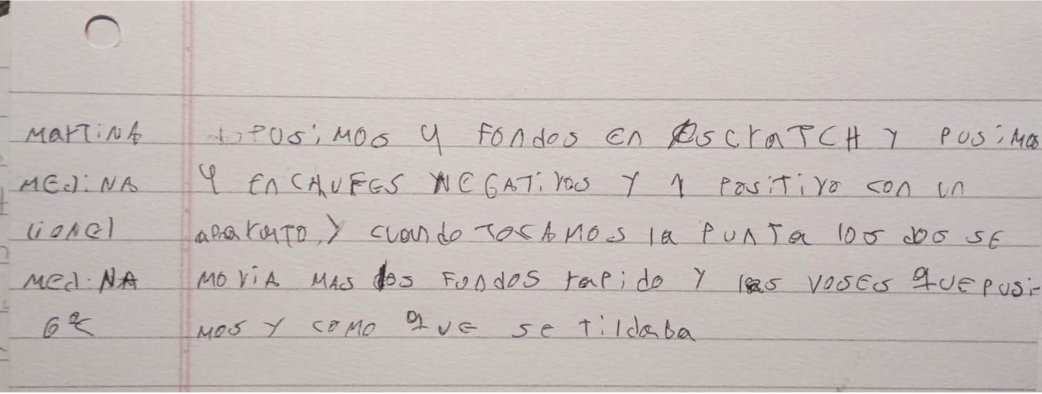 MarTiNA POSiMOS 4 FONdOS EN EScraTCH Y POSiMOS
MEdiNA 4 ENCHUFES NEGATiVOS Y 1 POSiTiVO CON UN
LiONEl APARATO, Y CUANdO TOCAMOS lA PUNTA lOS dOS SE
MEdiNA MOViA MAS lOS FONdOS RAPidO Y lAS VOSES QUE PUSi-
6º MOS Y COMO QUE SE TildABA